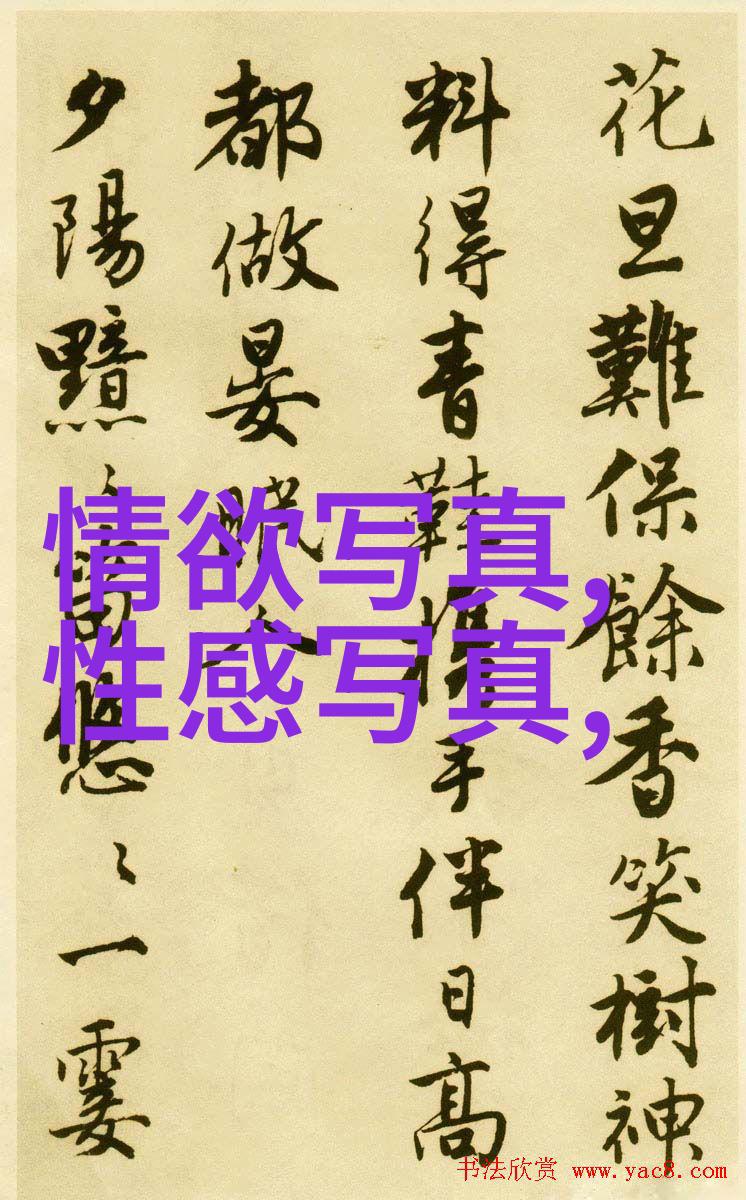 花旦難保餘香笑樹神
料得青鞋携手伴日高
都做晏眠人
夕陽黯〻悠〻一霎
情欲写真,
性感写真,
书法欣赏 www.yac8.com